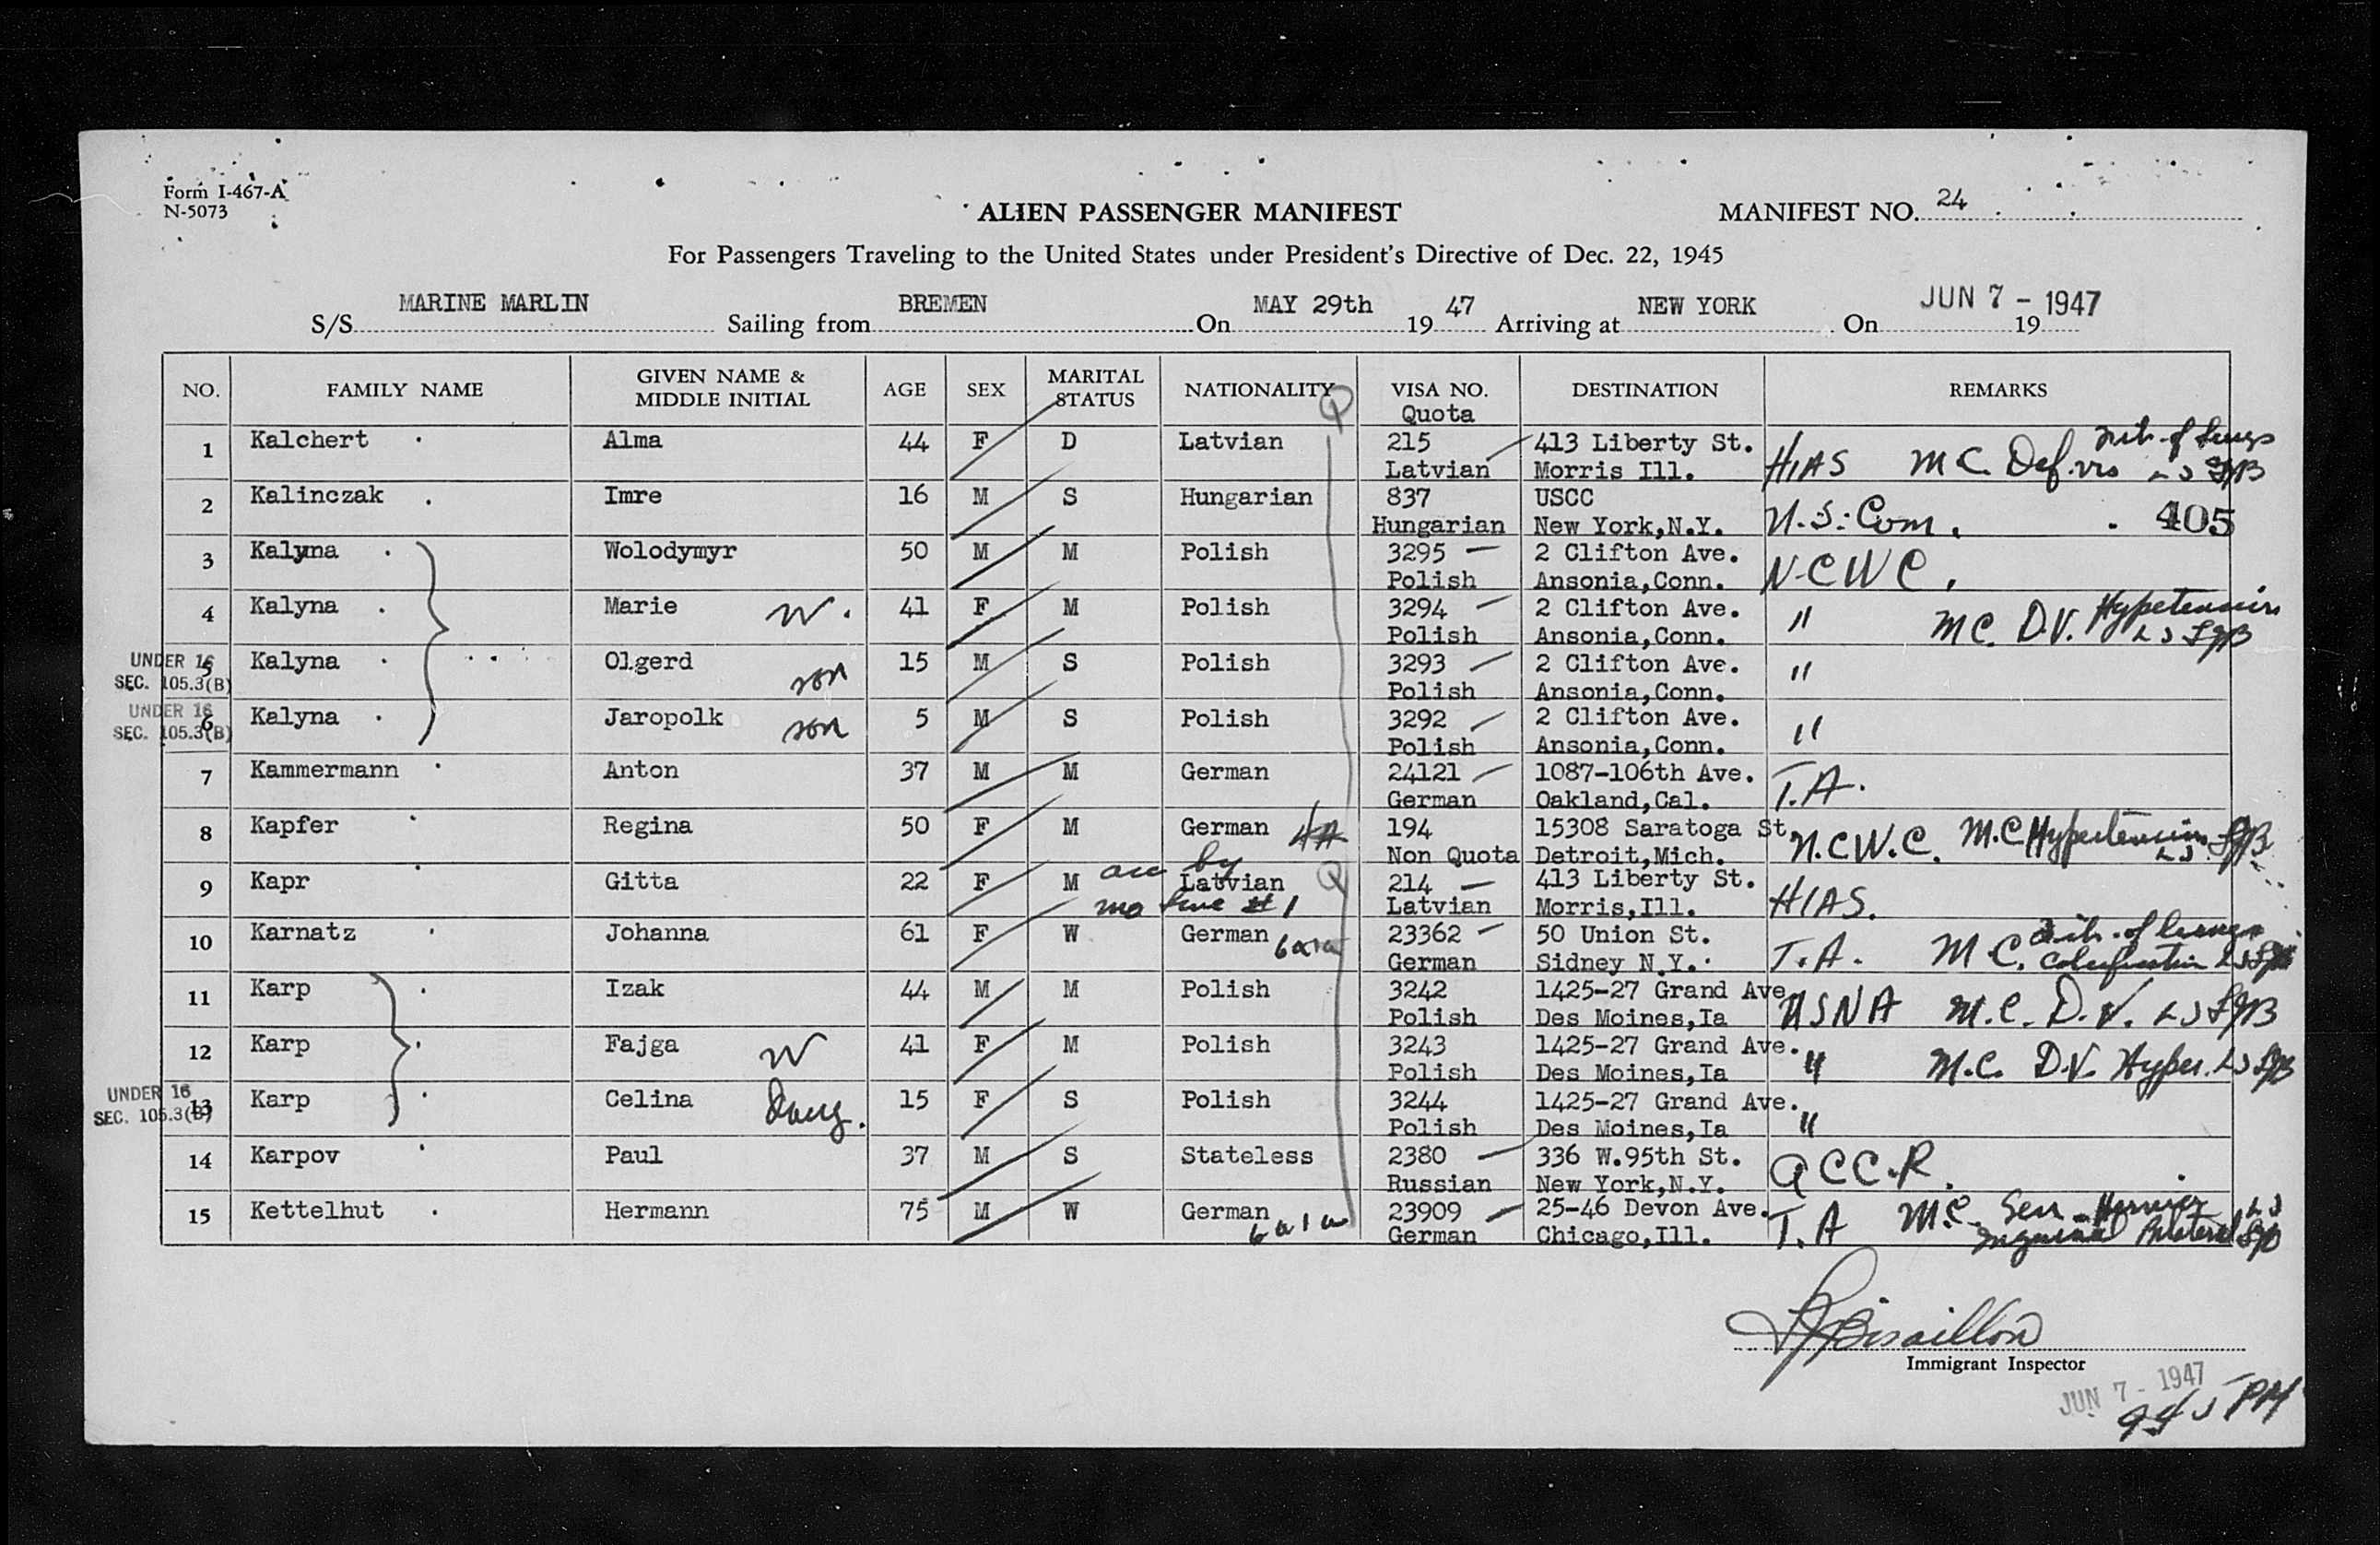 Form I-467-A
N-5073
ALIEN PASSENGER MANIFEST
MANIFEST NO. 24
For Passengers Traveling to the United States under President's Directive of Dec. 22, 1945
S/S MARINE MARLIN Sailing from BREMEN On MAY 29th 19 47 Arriving at NEW YORK On JUN 7 - 1947 19
NO. FAMILY NAME GIVEN NAME & MIDDLE INITIAL AGE SEX MARITAL STATUS NATIONALITY VISA NO. DESTINATION REMARKS
Quota
Q
1 Kalchert Alma 44 F D Latvian 215 413 Liberty St.
Latvian Morris Ill. HIAS M C. Def. vis
2 Kalinczak Imre 16 M S Hungarian 837 USCC
Hungarian New York,N.Y. U.S. Com. 405
3 Kalyna Wolodymyr 50 M M Polish 3295 2 Clifton Ave.
Polish Ansonia,Conn. N-CWC.
4 Kalyna Marie W. 41 F M Polish 3294 2 Clifton Ave.
Polish Ansonia,Conn. " MC. D.V. Hypetension
UNDER 16
SEC. 105.3(B)
5 Kalyna Olgerd son 15 M S Polish 3293 2 Clifton Ave.
Polish Ansonia,Conn. "
UNDER 16
SEC. 105.3(B)
6 Kalyna Jaropolk son 5 M S Polish 3292 2 Clifton Ave.
Polish Ansonia,Conn. "
7 Kammermann Anton 37 M M German 24121 1087-106th Ave.
German Oakland,Cal. T.A.
8 Kapfer Regina 50 F M German 194 15308 Saratoga St.
Non Quota Detroit,Mich. N.C.W.C. M.C Hypertension
acc by
9 Kapr Gitta 22 F M Latvian Q 214 413 Liberty St.
mo line #1 Latvian Morris,Ill. HIAS.
10 Karnatz Johanna 61 F W German 6a1a 23362 50 Union St.
German Sidney N.Y. T.A. M C.
11 Karp Izak 44 M M Polish 3242 1425-27 Grand Ave
Polish Des Moines,Ia USNA M.C. D.V.
12 Karp Fajga W 41 F M Polish 3243 1425-27 Grand Ave.
Polish Des Moines,Ia " M.C. D.V. Hyper.
UNDER 16
SEC. 105.3(B)
13 Karp Celina Daug. 15 F S Polish 3244 1425-27 Grand Ave.
Polish Des Moines,Ia "
14 Karpov Paul 37 M S Stateless 2380 336 W.95th St.
Russian New York,N.Y. ACC.R.
15 Kettelhut Hermann 75 M W German 6a1a 23909 25-46 Devon Ave.
German Chicago,Ill. T.A M.C. Sen. Hernia
Inguinal Bilateral
Bisaillon
Immigrant Inspector
JUN 7 - 1947
945 PM